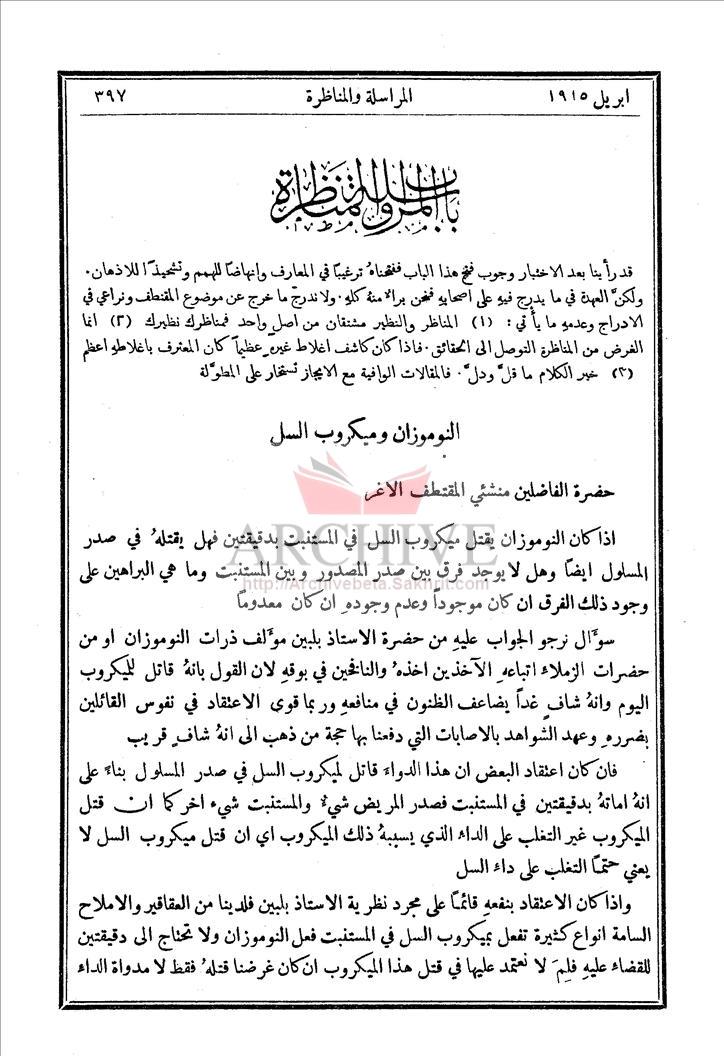 ابريل ١٩١٥ المراسلة والمناظرة ٣٩٧
باب المراسلة والمناظرة
قد رأينا بعد الاختبار وجوب فتح هذا الباب ففتحناهُ ترغيبًا في المعارف وانهاضًا للهمم وتشحيذًا للاذهان .
ولكنَّ العهدة في ما يدرج فيهِ على اصحابهِ فنحن برالا منه كلهِ . ولا ندرج ما خرج عن موضوع المقتطف ونراعي في
الادراج وعدمهِ ما يأتي : (١) المناظر والنظير مشتقان من اصل واحد فمناظرك نظيرك (٢) انما
الغرض من المناظرة التوصل الى الحقائق . فاذا كان كاشف اغلاط غيرهِ عظيمًا كان المعترف باغلاطهِ اعظم
(٣) خير الكلام ما قلَّ ودلَّ . فالمقالات الوافية مع الايجاز تستخار على المطوَّلة
النوموزان وميكروب السل
حضرة الفاضلين منشئي المقتطف الاغر
ARCHIVE
http://Archivebeta.Sakhrit.com
اذا كان النوموزان يقتل ميكروب السل في المستنبت بدقيقتين فهل يقتلهُ في صدر
المسلول ايضًا وهل لا يوجد فرق بين صدر المصدور وبين المستنبت وما هي البراهين على
وجود ذلك الفرق ان كان موجوداً وعدم وجودهِ ان كان معدوماً
سوَّال نرجو الجواب عليهِ من حضرة الاستاذ بلبين موَّلف ذرات النوموزان او من
حضرات الزملاء اتباعهِ الآخذين اخذهُ والنافخين في بوقهِ لان القول بانهُ قاتل للميكروب
اليوم وانهُ شافٍ غداً يضاعف الظنون في منافعهِ وربما قوى الاعتقاد في نفوس القائلين
بضررهِ وعهد الشواهد بالاصابات التي دفعنا بها حجة من ذهب الى انهُ شافٍ قريب
فان كان اعتقاد البعض ان هذا الدواءَ قاتل لميكروب السل في صدر المسلول بناءً على
انهُ اماتهُ بدقيقتين في المستنبت فصدر المريض شيءٌ والمستنبت شيء اخر كما ان قتل
الميكروب غير التغلب على الداء الذي يسببهُ ذلك الميكروب اي ان قتل ميكروب السل لا
يعني حتمًا التغلب على داء السل
واذا كان الاعتقاد بنفعهِ قائمًا على مجرد نظرية الاستاذ بلبين فلدينا من العقاقير والاملاح
السامة انواع كثيرة تفعل بميكروب السل في المستنبت فعل النوموزان ولا تحتاج الى دقيقتين
للقضاء عليهِ فلِمَ لا نعتمد عليها في قتل هذا الميكروب ان كان غرضنا قتلهُ فقط لا مدواة الداء